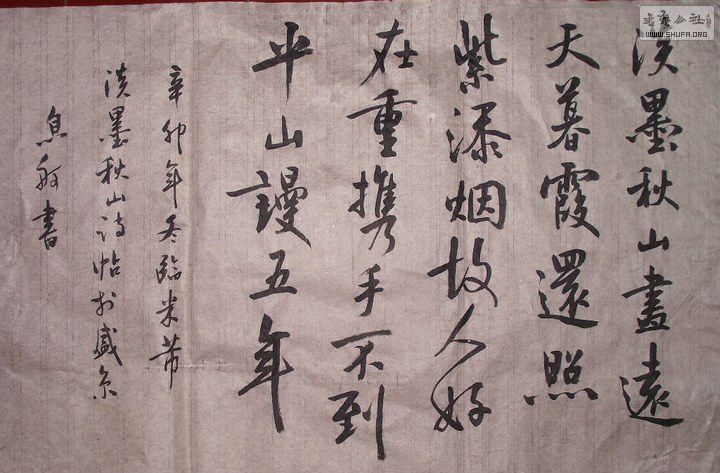 淡墨秋山畫遠
天暮霞還照
紫添烟故人好
在重攜手不到
平山謾五年
辛卯年冬臨米芾
淡墨秋山诗帖於盛京
息書
公社
WWW.SHUFA.ORG